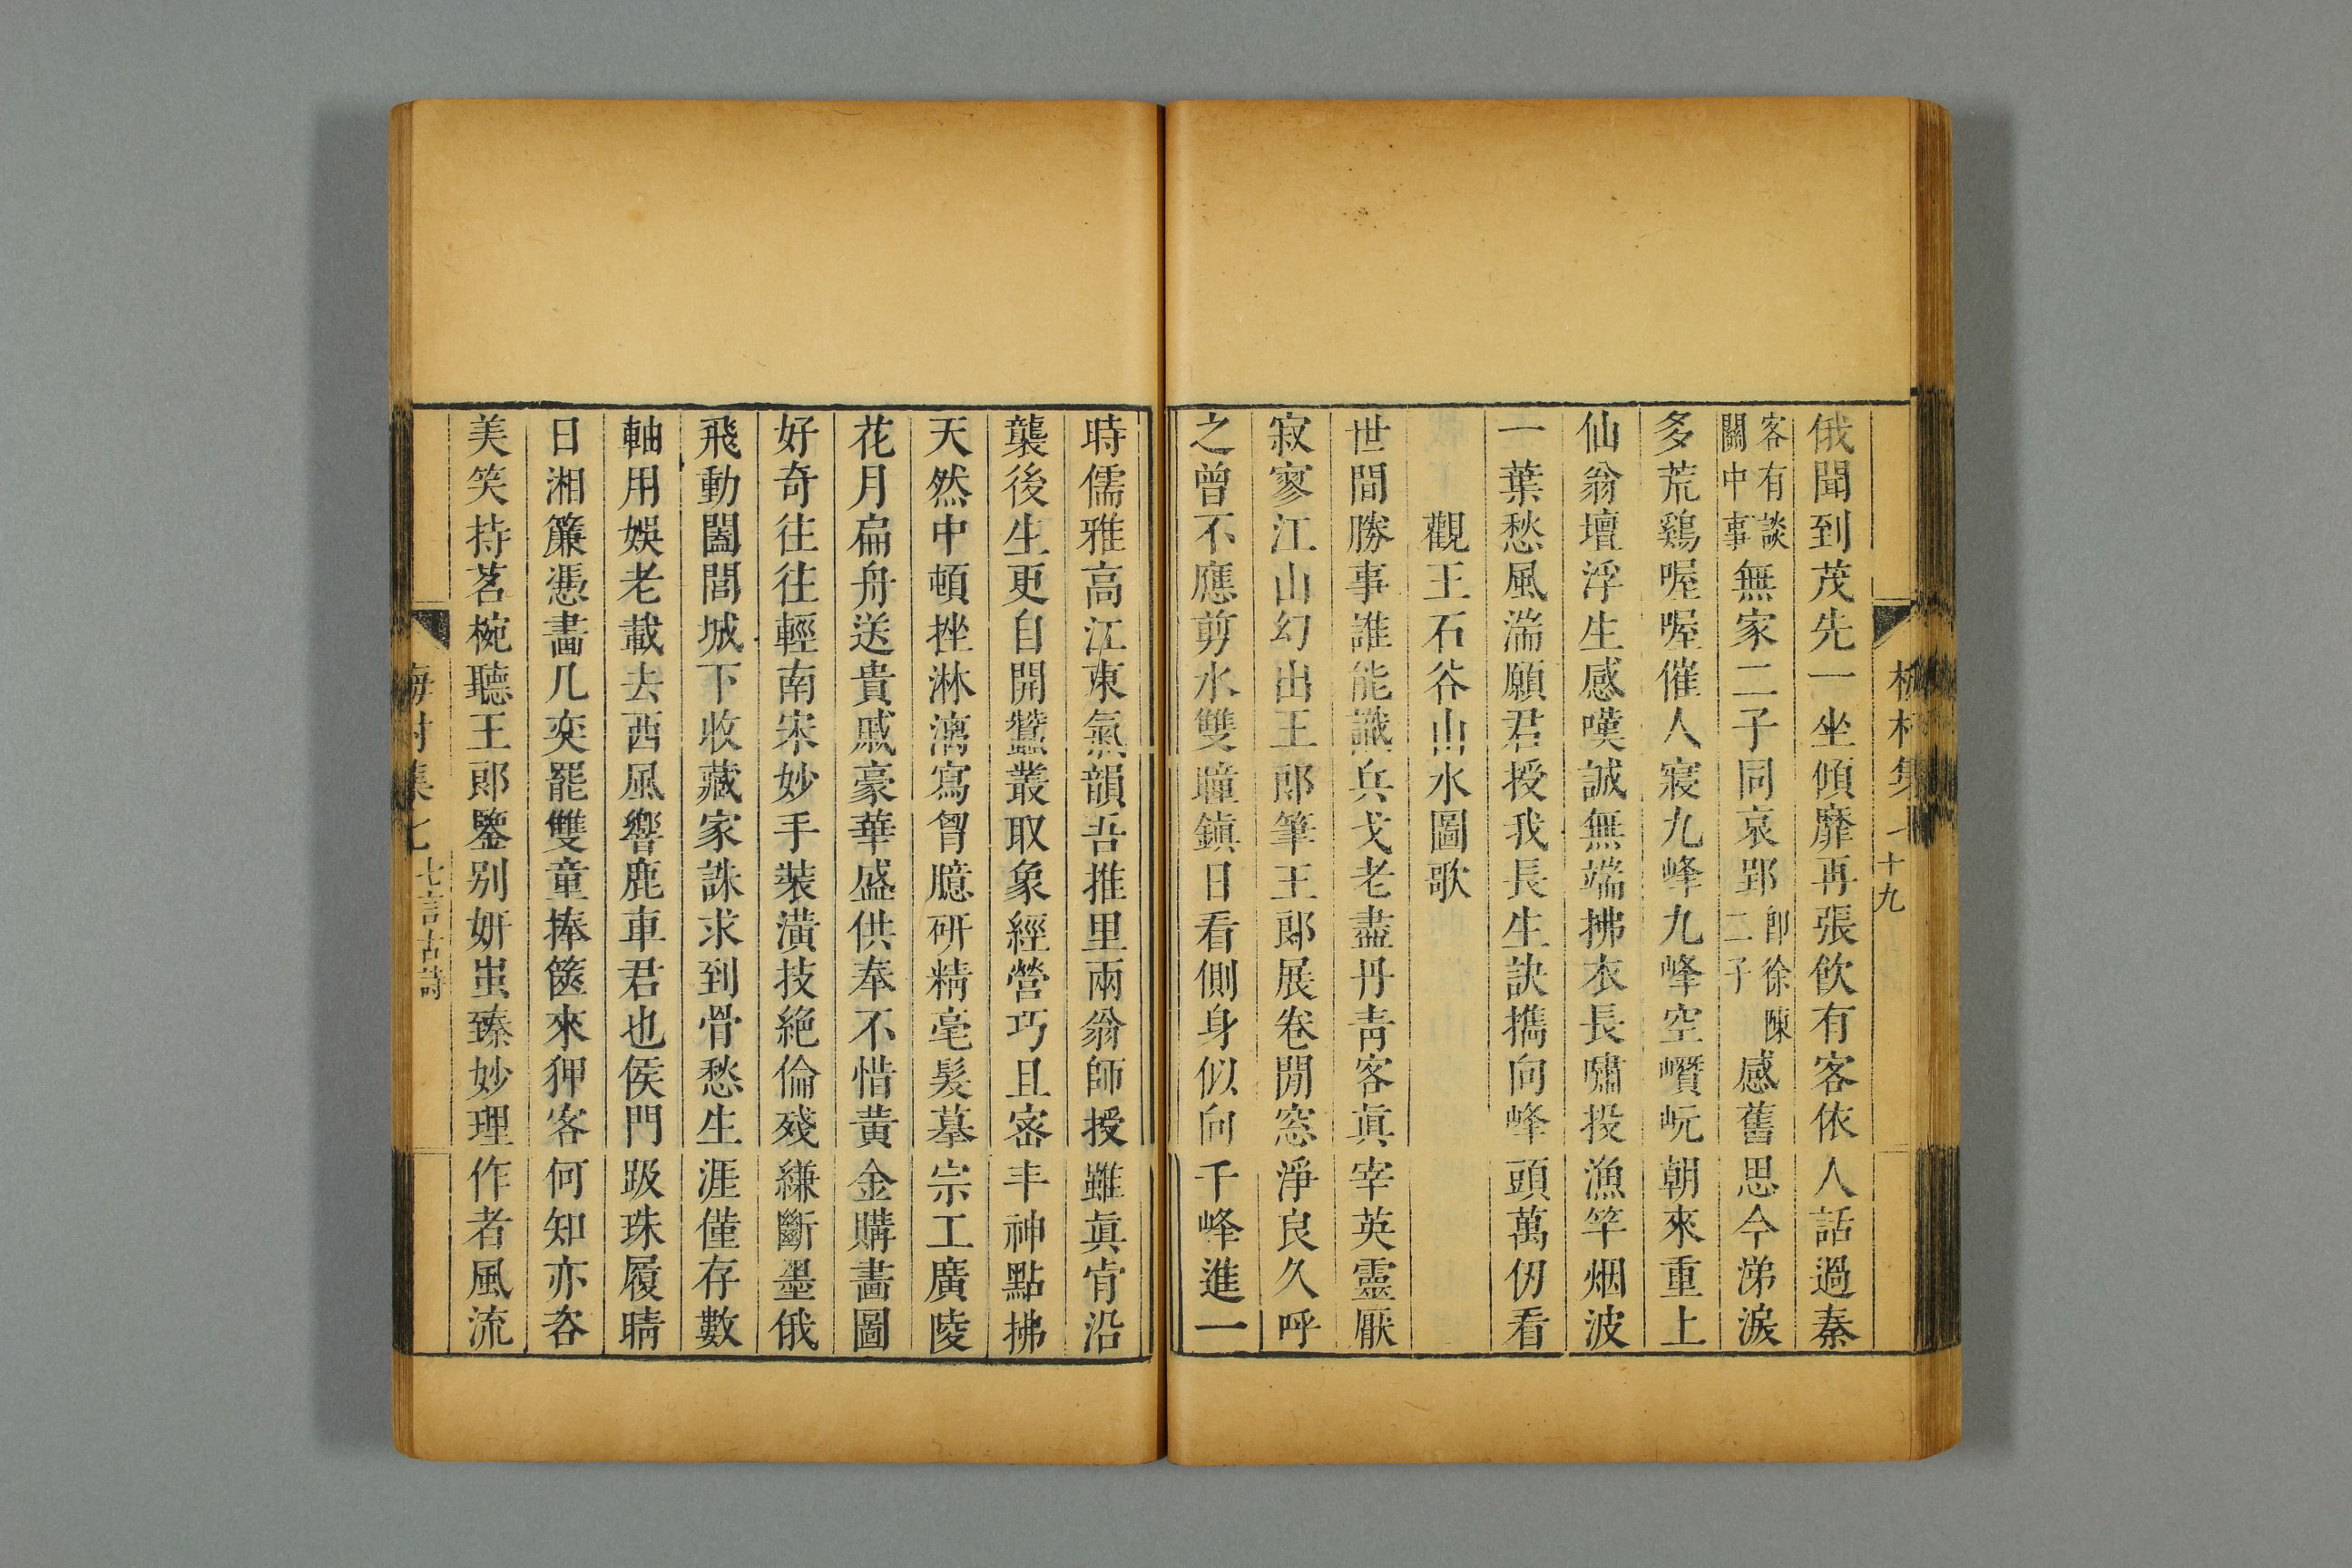 俄聞到茂先一坐傾靡再張飲有客依人話過秦
客有談關中事無家二子同哀郢卽徐陳二子感舊思今涕淚
多荒鷄喔喔催人寢九峰九峰空巑岏朝來重上
仙翁壇浮生感嘆誠無端拂衣長嘯投漁竿烟波
一葉愁風湍願君授我長生訣攜向峰頭萬仞看
觀王石谷山水圖歌
世間勝事誰能識兵戈老盡丹靑客眞宰英靈厭
寂寥江山幻出王郞筆王郞展卷閒窓淨良久呼
之曾不應剪水雙瞳鎭日看側身似向千峰進一
十九
時儒雅高江東氣韻吾推里兩翁師授雖眞肯沿
襲後生更自開蠶叢取象經營巧且密丰神點拂
天然中頓挫淋漓寫胷臆研精毫髮摹宗工廣陵
花月扁舟送貴戚豪華盛供奉不惜黄金購畵圖
好奇往往輕南宋妙手裝潢技絶倫殘縑斷墨俄
飛動闔閭城下收藏家誅求到骨愁生涯僅存數
軸用娛老載去西風響鹿車君也侯門跋珠履晴
日湘簾慿畵几奕罷雙童捧篋來狎客何知亦吝
美笑持茗椀聽王郞鑒别妍蚩臻妙理作者風流
七言古詩